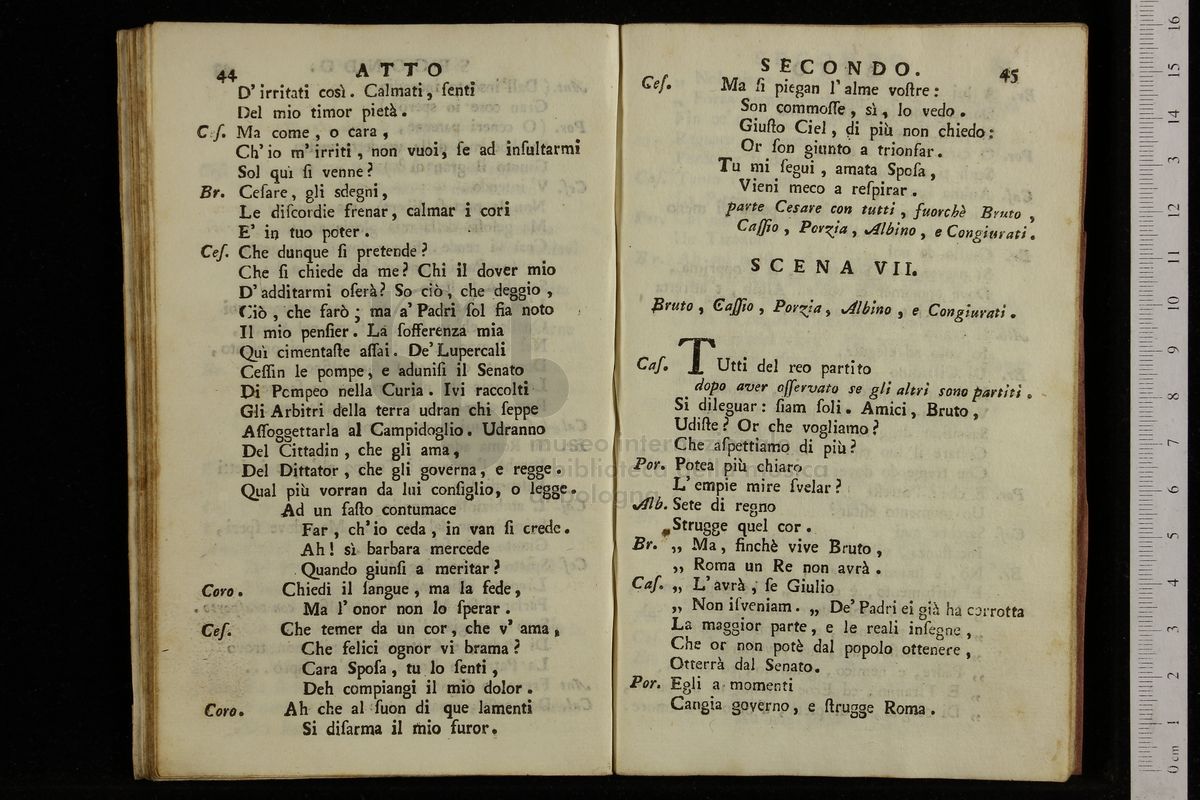 44 ATTO
D' irritati così. Calmati, ſenti
Del mio timor pietà.
Ceſ. Ma come, o cara,
Ch' io m' irriti, non vuoi, ſe ad inſultarmi
Sol quì ſi venne?
Br. Ceſare, gli sdegni,
Le diſcordie frenar, calmar i cori
E' in tuo poter.
Ceſ. Che dunque ſi pretende?
Che ſi chiede da me? Chi il dover mio
D' additarmi oſerà? So ciò, che deggio,
Ciò, che farò; ma a' Padri ſol fia noto
Il mio penſier. La ſofferenza mia
Quì cimentaſte aſſai. De' Lupercali
Ceſſin le pompe, e aduniſi il Senato
Di Pompeo nella Curia. Ivi raccolti
Gli Arbitri della terra udran chi ſeppe
Aſſoggettarla al Campidoglio. Udranno
Del Cittadin, che gli ama,
Del Dittator, che gli governa, e regge.
Qual più vorran da lui conſiglio, o legge.
Ad un faſto contumace
Far, ch' io ceda, in van ſi crede.
Ah! sì barbara mercede
Quando giunſi a meritar?
Coro. Chiedi il ſangue, ma la fede,
Ma l' onor non lo ſperar.
Ceſ. Che temer da un cor, che v' ama,
Che felici ognor vi brama?
Cara Spoſa, tu lo ſenti,
Deh compiangi il mio dolor.
Coro. Ah che al ſuon di que lamenti
Si diſarma il mio furor.
SECONDO. 45
Ceſ. Ma ſi piegan l' alme voſtre:
Son commoſſe, sì, lo vedo.
Giuſto Ciel, di più non chiedo:
Or ſon giunto a trionfar.
Tu mi ſegui, amata Spoſa,
Vieni meco a reſpirar.
parte Cesare con tutti, fuorchè Bruto,
Caſſio, Porzia, Albino, e Congiurati.
SCENA VII.
Bruto, Caſſio, Porzia, Albino, e Congiurati.
Caſ. TUtti del reo partito
dopo aver oſſervato se gli altri sono partiti.
Si dileguar: ſiam ſoli. Amici, Bruto,
Udiſte? Or che vogliamo?
Che aſpettiamo di più?
Por. Potea più chiaro
L' empie mire ſvelar?
Alb. Sete di regno
Strugge quel cor.
Br. „ Ma, finchè vive Bruto,
„ Roma un Re non avrà.
Caſ. „ L' avrà, ſe Giulio
„ Non iſveniam. „ De' Padri ei già ha corrotta
La maggior parte, e le reali inſegne,
Che or non potè dal popolo ottenere,
Otterrà dal Senato.
Por. Egli a momenti
Cangia governo, e ſtrugge Roma.
museo internazionale
e biblioteca della musica
di bologna
0 cm 1 2 3 4 5 6 7 8 9 10 11 12 13 14 15 16